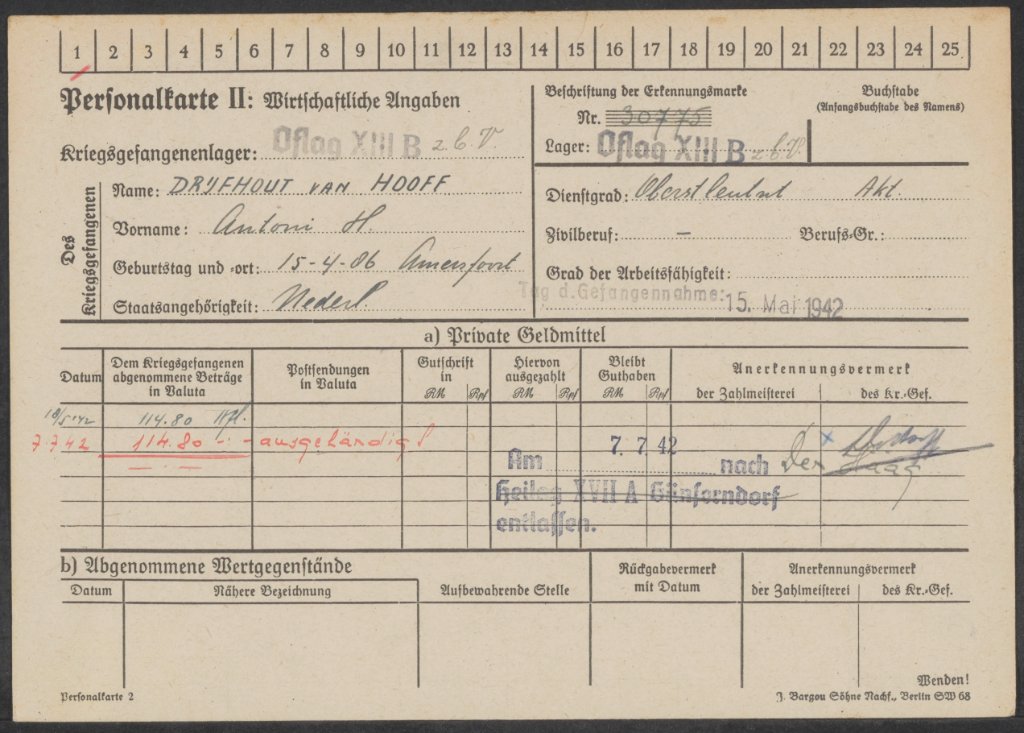 1 2 3 4 5 6 7 8 9 10 11 12 13 14 15 16 17 18 19 20 21 22 23 24 25
Personalkarte II: Wirtschaftliche Angaben
Kriegsgefangenenlager: Oflag XIII B z b V
Des Kriegsgefangenen
Name: DRIJFHOUT VAN HOOFF
Vorname: Antoni H.
Geburtstag und -ort: 15-4-86 Amersfoort
Staatsangehörigkeit: Nederl.
Beschriftung der Erkennungsmarke
Nr. 30775
Lager: Oflag XIII B z b V
Buchstabe
(Anfangsbuchstabe des Namens)
Dienstgrad: Oberstleutnt Akt.
Zivilberuf: – Berufs-Gr.:
Grad der Arbeitsfähigkeit:
Tag d. Gefangennahme: 15. Mai 1942
a) Private Geldmittel
Datum
Dem Kriegsgefangenen abgenommene Beträge in Valuta
Postsendungen in Valuta
Gutschrift in
RM Rpf
Hiervon ausgezahlt
RM Rpf
Bleibt Guthaben
RM Rpf
Anerkennungsvermerk
der Zahlmeisterei des Kr.-Gef.
18/5 42 114.80 Hfl.
7 7 42 114.80 - ausgehändigt
Am 7. 7. 42 nach Den Haag
Heilag XVII A Gänserndorf
entlassen.
b) Abgenommene Wertgegenstände
Datum
Nähere Bezeichnung
Aufbewahrende Stelle
Rückgabevermerk mit Datum
Anerkennungsvermerk
der Zahlmeisterei des Kr.-Gef.
Wenden!
Personalkarte 2
J. Bargou Söhne Nachf., Berlin SW 68